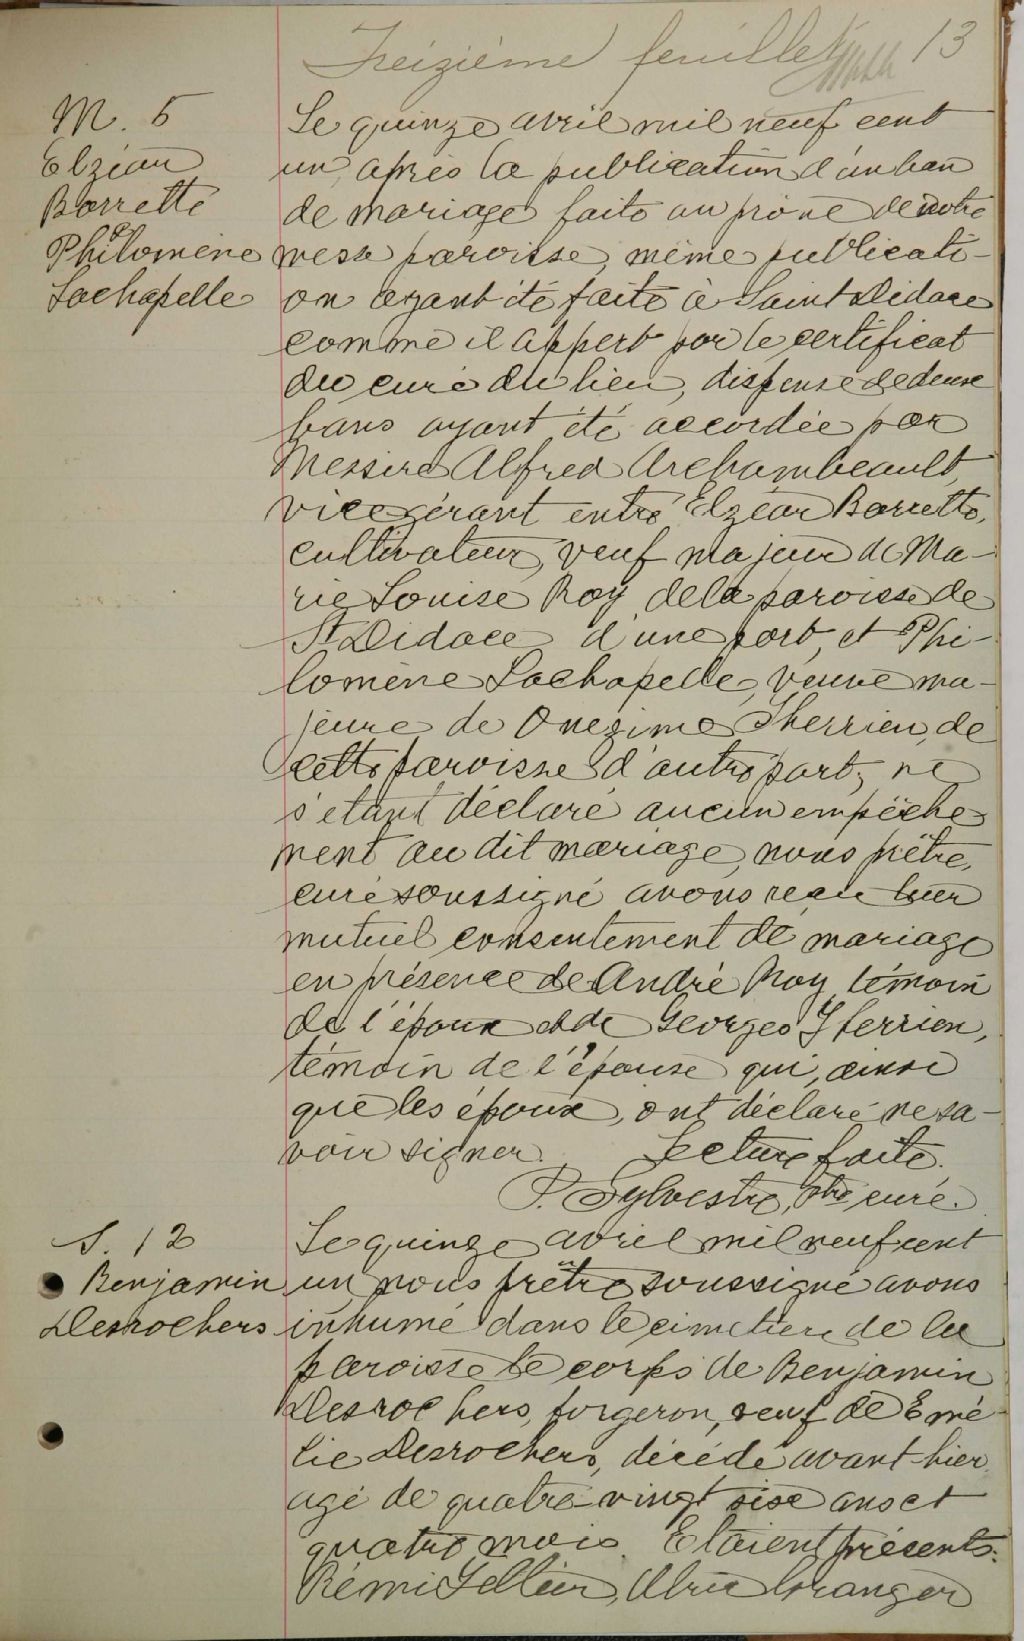 Treizième feuillet 13
M. 5
Elzéar
Barrette
&
Philomène
Lachapelle
Le quinze avril mil neuf cent
un, après la publication d'un ban
de mariage faite au prône de notre
messe paroisse, même publicati-
on ayant été faite à Saint Didace
comme il appert par le certificat
du curé du lieu, dispense de deux
bans ayant été accordée par
Messire Alfred Archambeault,
vice gérant entre Elzéar Barrette,
cultivateur, veuf majeur de Ma-
rie Louise Roy de la paroisse de
St Didace d'une part, et Phi-
lomène Lachapelle, veuve ma-
jeure de Onezime Therrien, de
cette paroisse d'autre part; ne
s'etant déclaré aucun empêche-
ment au dit mariage, nous prêtre,
curé soussigné avons reçu leur
mutuel consentement de mariage
en présence de André Roy témoin
de l'époux et de Georges Therrien,
témoin de l'épouse qui, ainsi
que les époux, ont déclaré ne sa-
voir signer. Lecture faite.
P. Sylvestre, Ptre curé.
S. 12
Benjamin
Desrochers
Le quinze avril mil neuf cent
un, nous prêtre soussigné avons
inhumé dans le cimetière de la
paroisse le corps de Benjamin
Desrochers, forgeron, veuf de Emé-
lie Desrochers, décédé avant-hier
agé de quatre-vingt six ans et
quatre mois. Etaient présents:
Rémi Tellier, Ulric Granger